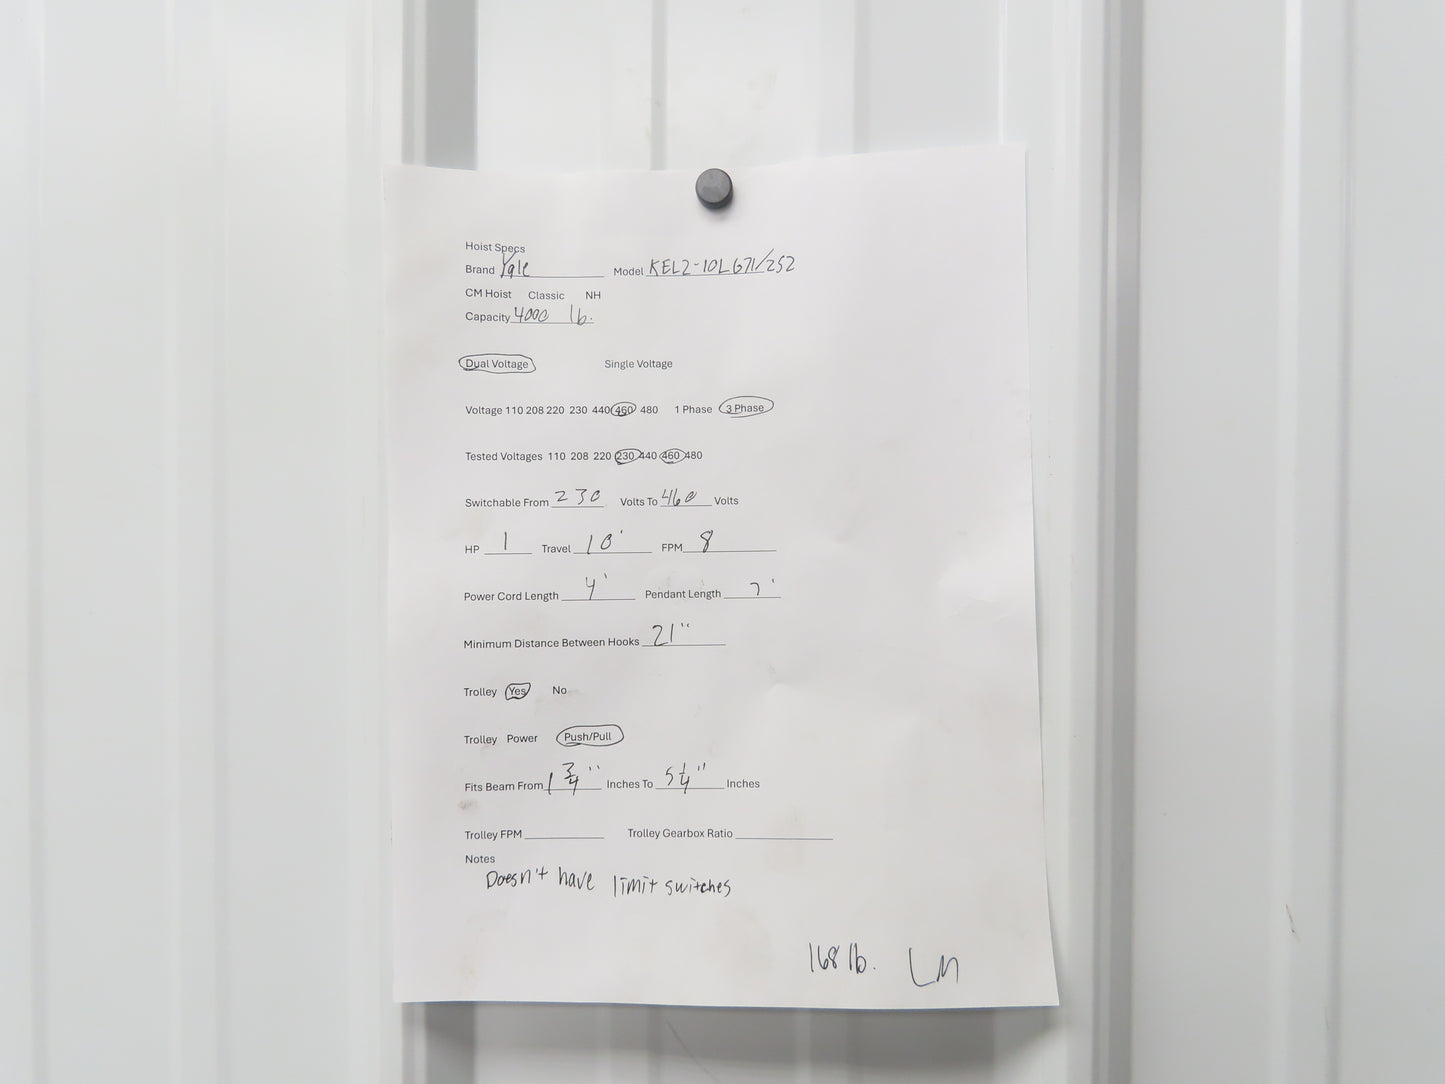 Hoist Specs
Brand Yale Model KEL2-10LG71/252
CM Hoist Classic NH
Capacity 4000 lb.
Dual Voltage Single Voltage
Voltage 110 208 220 230 440 460 480 1 Phase 3 Phase
Tested Voltages 110 208 220 230 440 460 480
Switchable From 230 Volts To 460 Volts
HP 1 Travel 10' FPM 8
Power Cord Length 4' Pendant Length 7'
Minimum Distance Between Hooks 21"
Trolley Yes No
Trolley Power Push/Pull
Fits Beam From 1 3/4" Inches To 5 1/4" Inches
Trolley FPM Trolley Gearbox Ratio
Notes
Doesn't have limit switches
168 lb. LM